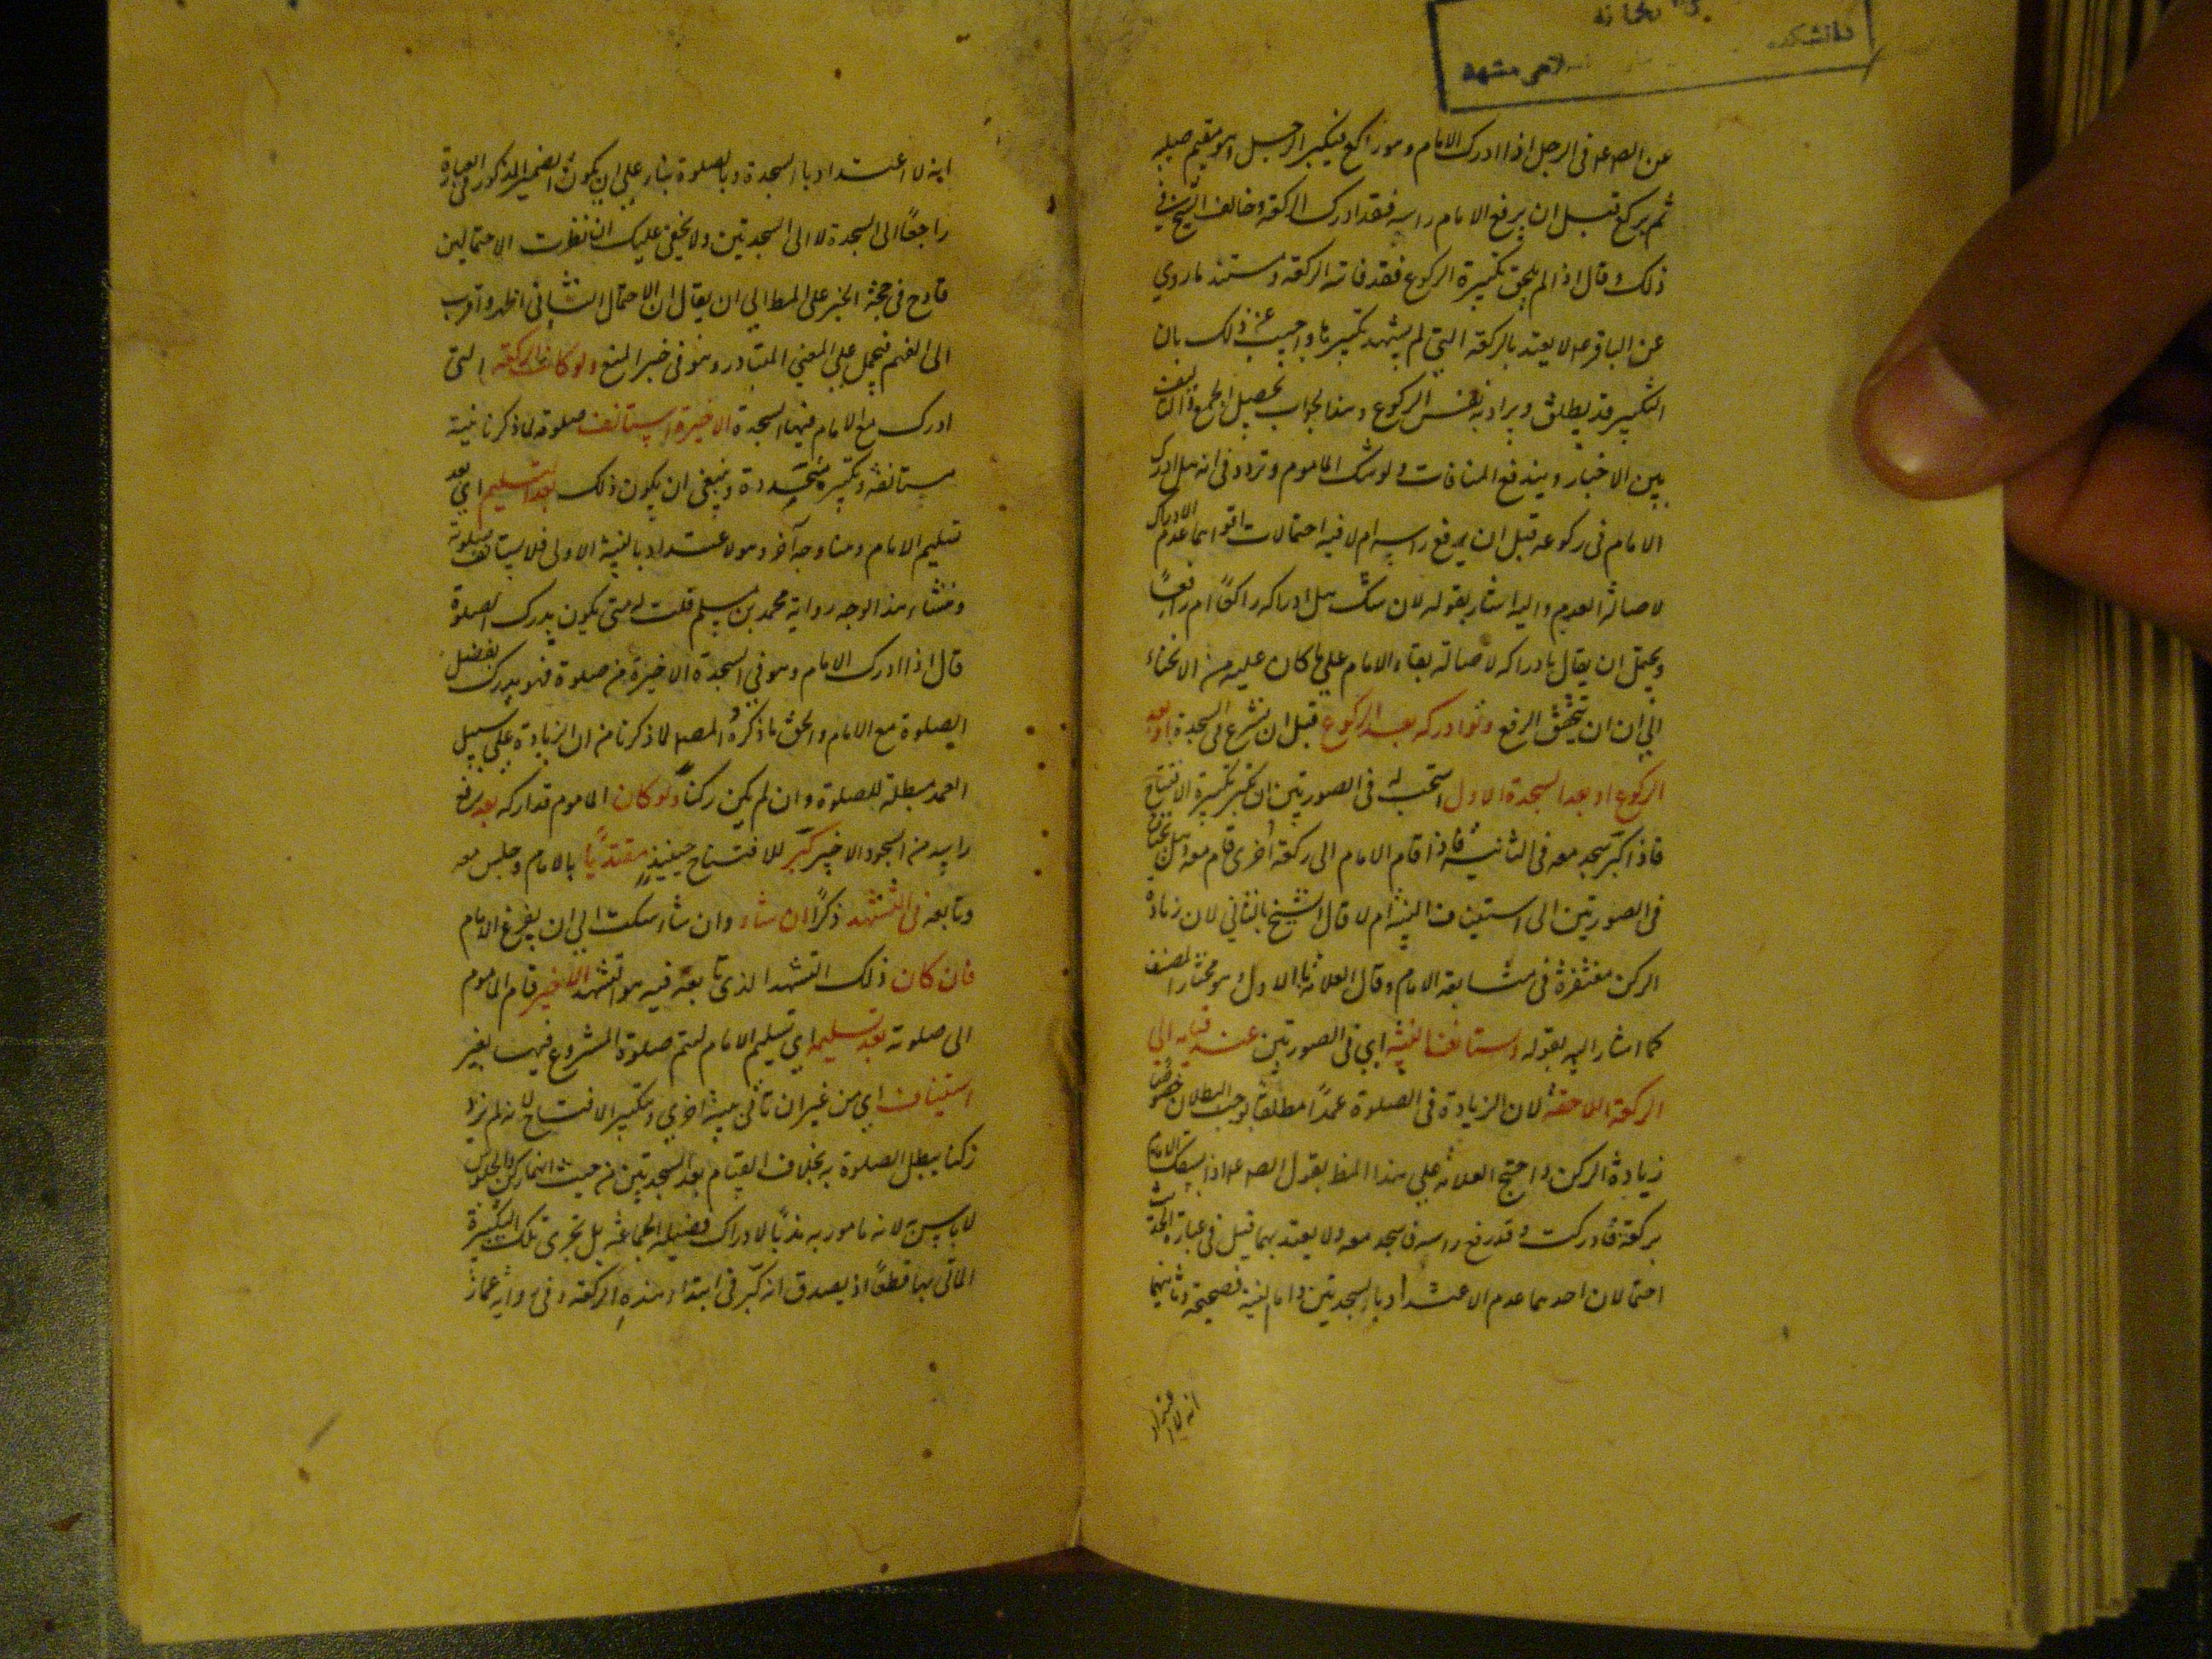 كتابخانه
دانشكده
اسلامى مشهد
عن الصه عه فى الرجل اذا ادرك الامام وهو راكع فيكبر الرجل وهو مقيم صلبه
ثم يركع قبل ان يرفع الامام راسه فقد ادرك الركعة وخالف الشيخ فى
ذلك وقال اذا لم يلحق تكبيرة الركوع فقد فاتته الركعة ومستنده ما روي
عن الباقر عه لا يعتد بالركعة التي لم يشهد تكبيرها واجيب عن ذلك بان
التكبير قد يطلق ويراد به نفس الركوع وبهذا الجواب يحصل الجمع والتاليف
بين الاخبار ويندفع المنافات ولو شك الماموم وتردد فى انه هل ادرك
الامام فى ركوعه قبل ان يرفع راسه ام لا فيه احتمالات اقواهما عدم الادراك
لاصالة العدم واليه اشار بقوله لان شك هل ادركه راكعًا ام رافعًا
ويحتمل ان يقال بادراكه لاصالة بقاء الامام علي ما كان عليه من الانحناء
الي ان يتحقق الرفع ولو ادركه بعد الركوع قبل ان يشرع فى السجدة او بعد
الركوع او بعد السجدة الاول استحب له فى الصورتين ان يكبر تكبيرة الافتتاح
فاذا كبر سجد معه فى الثانية فاذا قام الامام الى ركعة أخرى قام معه وهل يحتاج
فى الصورتين الى استيناف النية ام لا قال الشيخ بالثاني لان زيادة
الركن مغتفرة فى متابعة الامام وقال العلامة بالاول وهو مختار المصنف
كما اشار اليه بقوله واستانف النية اي فى الصورتين عند قيامه الي
الركعة اللاحقة لان الزيادة فى الصلوة عمدًا مطلقا يوجب البطلان خصوصًا
زيادة الركن واحتج العلامة علي هذا المط بقول الصه عه اذا سبقك الامام
بركعة فادركته وقد رفع راسه فاسجد معه ولا يعتد بها قيل فى عبارة الحديث
احتمالان احدهما عدم الاعتداد بالسجدتين واما النية فصحيحة وثانيهما
انه لا اعتداد
انه لا اعتداد بالسجدة وبالصلوة بناء علي ان يكون الضمير المذكور فى العبارة
راجعًا الى السجدة لا الى السجدتين ولا يخفى عليك ان تفاوت الاحتمالين
قادح فى حجية الخبر على المط الي ان يقال ان الاحتمال الثانى اظهر واقرب
الى الفهم فيحمل علي المعني المتبادر وهو فى خبر المنع ولو كانت الركعة التى
ادرك مع الامام فيها السجدة الاخيرة استانف صلوته لما ذكرنا بنية
مستانفة وتكبيرة متجددة وينبغى ان يكون ذلك بعد التسليم اي بعد
تسليم الامام وهنا وجه آخر وهو لا عتداد بالنية الاولى فلا يستانف صلوته
ومنشاء هذا الوجه رواية محمد بن مسلم قلت له متى يكون يدرك الصلوة
قال اذا ادرك الامام وهو في السجدة الاخيرة من صلوة فهو يدرك بفضل
الصلوة مع الامام والحق ما ذكره المصه لما ذكرنا من ان الزيادة علي سبيل
العمد مبطلة للصلوة وان لم يكن ركنًا ولو كان الماموم قد ادركه بعد رفع
راسه من السجود الاخير كبّر للافتتاح حينئذٍ مقتديًا بالامام وجلس معه
وتابعه فى التشهد ذكرًا ان شاء وان شاء سكت الي ان يفرغ الامام
فان كان ذلك التشهد الذى تابعه فيه هو التشهد الاخير قام الماموم
الى صلوته بعد تسليمه اي تسليم الامام ليتم صلوة المشروع فيها بغير
استيناف اي من غير ان تاتى بنية اخري وتكبير الافتتاح لانه لم يزد
ركنا يبطل الصلوة به بخلاف القيام بعد السجدتين من حيث انهما ركن والجلوس
لا باس به لانه مامور به ندبًا لادراك فضيلة الجماعة بل تجزى تلك التكبيرة
الماتى بها قطعًا اذ يصدق انه كبّر فى ابتداء هذه الركعة وفى رواية عمار